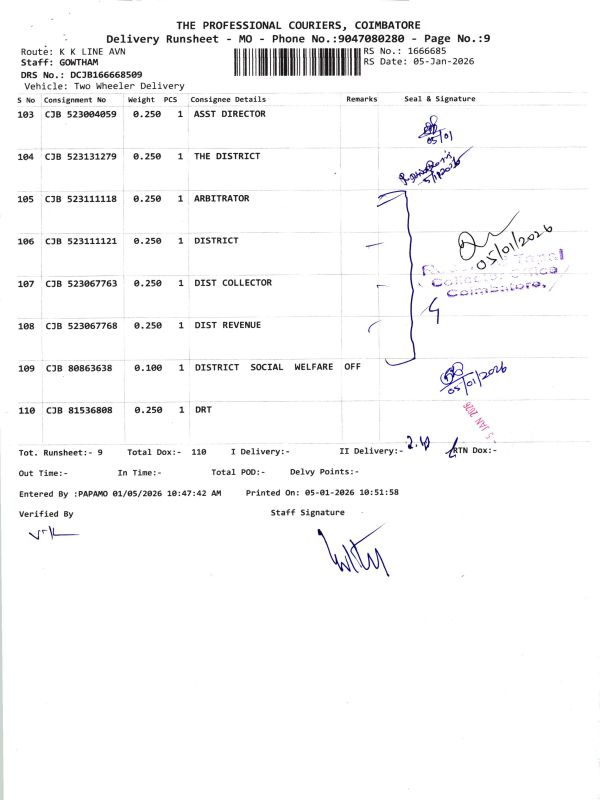 THE PROFESSIONAL COURIERS, COIMBATORE
Delivery Runsheet - MO - Phone No.:9047080280 - Page No.:9
Route: K K LINE AVN RS No.: 1666685
Staff: GOWTHAM RS Date: 05-Jan-2026
DRS No.: DCJB166668509
Vehicle: Two Wheeler Delivery
S No Consignment No Weight PCS Consignee Details Remarks Seal & Signature
103 CJB 523004059 0.250 1 ASST DIRECTOR
05/01
104 CJB 523131279 0.250 1 THE DISTRICT
5/1/2026
105 CJB 523111118 0.250 1 ARBITRATOR
106 CJB 523111121 0.250 1 DISTRICT
05/01/2026
107 CJB 523067763 0.250 1 DIST COLLECTOR
Collector Office
Coimbatore.
4
108 CJB 523067768 0.250 1 DIST REVENUE
109 CJB 80863638 0.100 1 DISTRICT SOCIAL WELFARE OFF
05/01/2026
110 CJB 81536808 0.250 1 DRT
- 5 JAN 2026
Tot. Runsheet:- 9 Total Dox:- 110 I Delivery:- II Delivery:- RTN Dox:-
Out Time:- In Time:- Total POD:- Delvy Points:-
Entered By :PAPAMO 01/05/2026 10:47:42 AM Printed On: 05-01-2026 10:51:58
Verified By Staff Signature